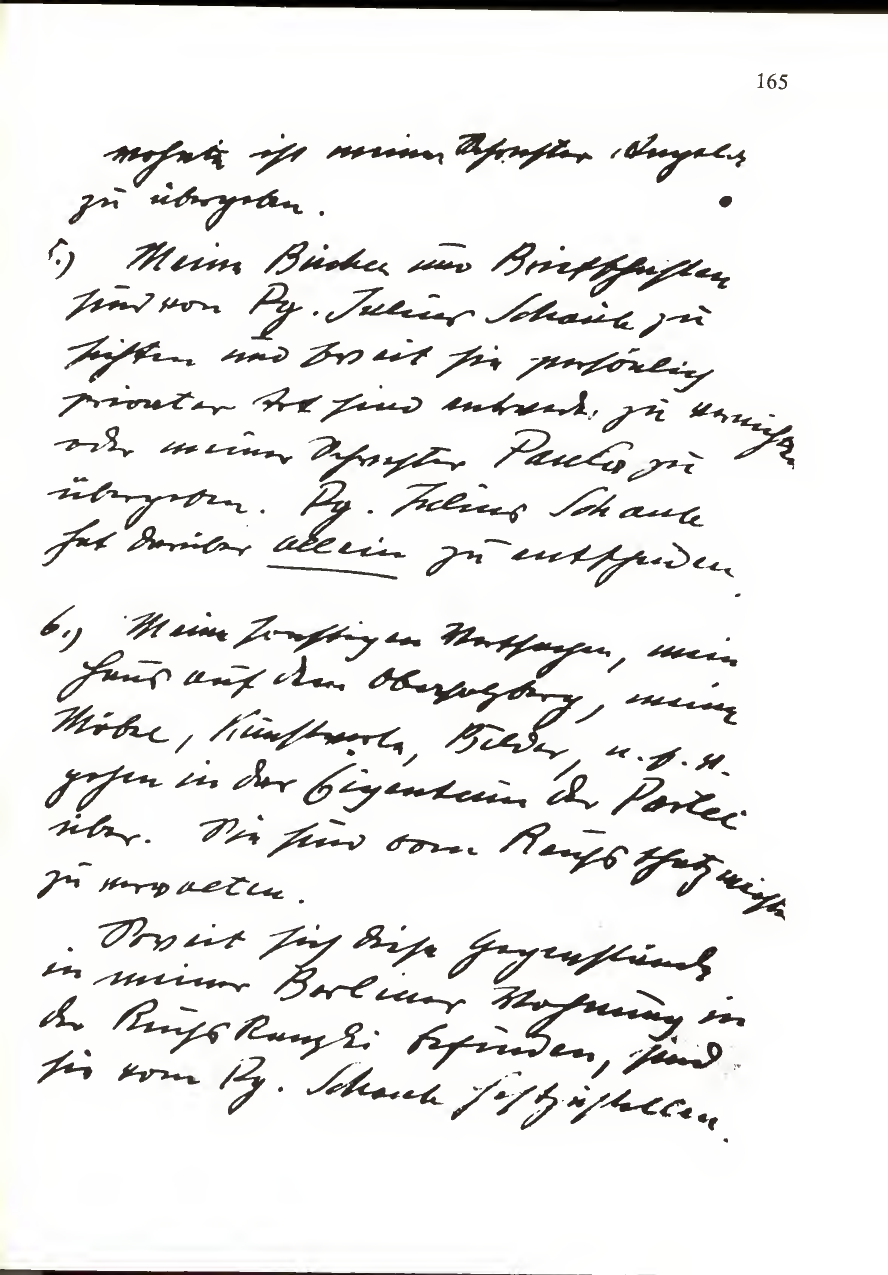 165
wohnte ist meiner Schwester Angela
zu übergeben.
5.) Meine Bücher und Briefschaften
sind von Pg. Julius Schaub zu
sichten und soweit sie persönlich
privater Art sind entwed. zu vernichten
oder meiner Schwester Paula zu
übergeben. Pg. Julius Schaub
hat darüber allein zu entscheiden.
6.) Meine sonstigen Wertsachen, mein
Haus auf dem Obersalzberg, meine
Möbel, Kunstwerke, Bilder, u.s.w.
gehen in das Eigentum der Partei
über. Sie sind vom Reichsschatzmeister
zu verwalten.
Soweit sich diese Gegenstände
in meiner Berliner Wohnung in
der Reichskanzlei befinden, sind
sie vom Pg. Schaub festzustellen.